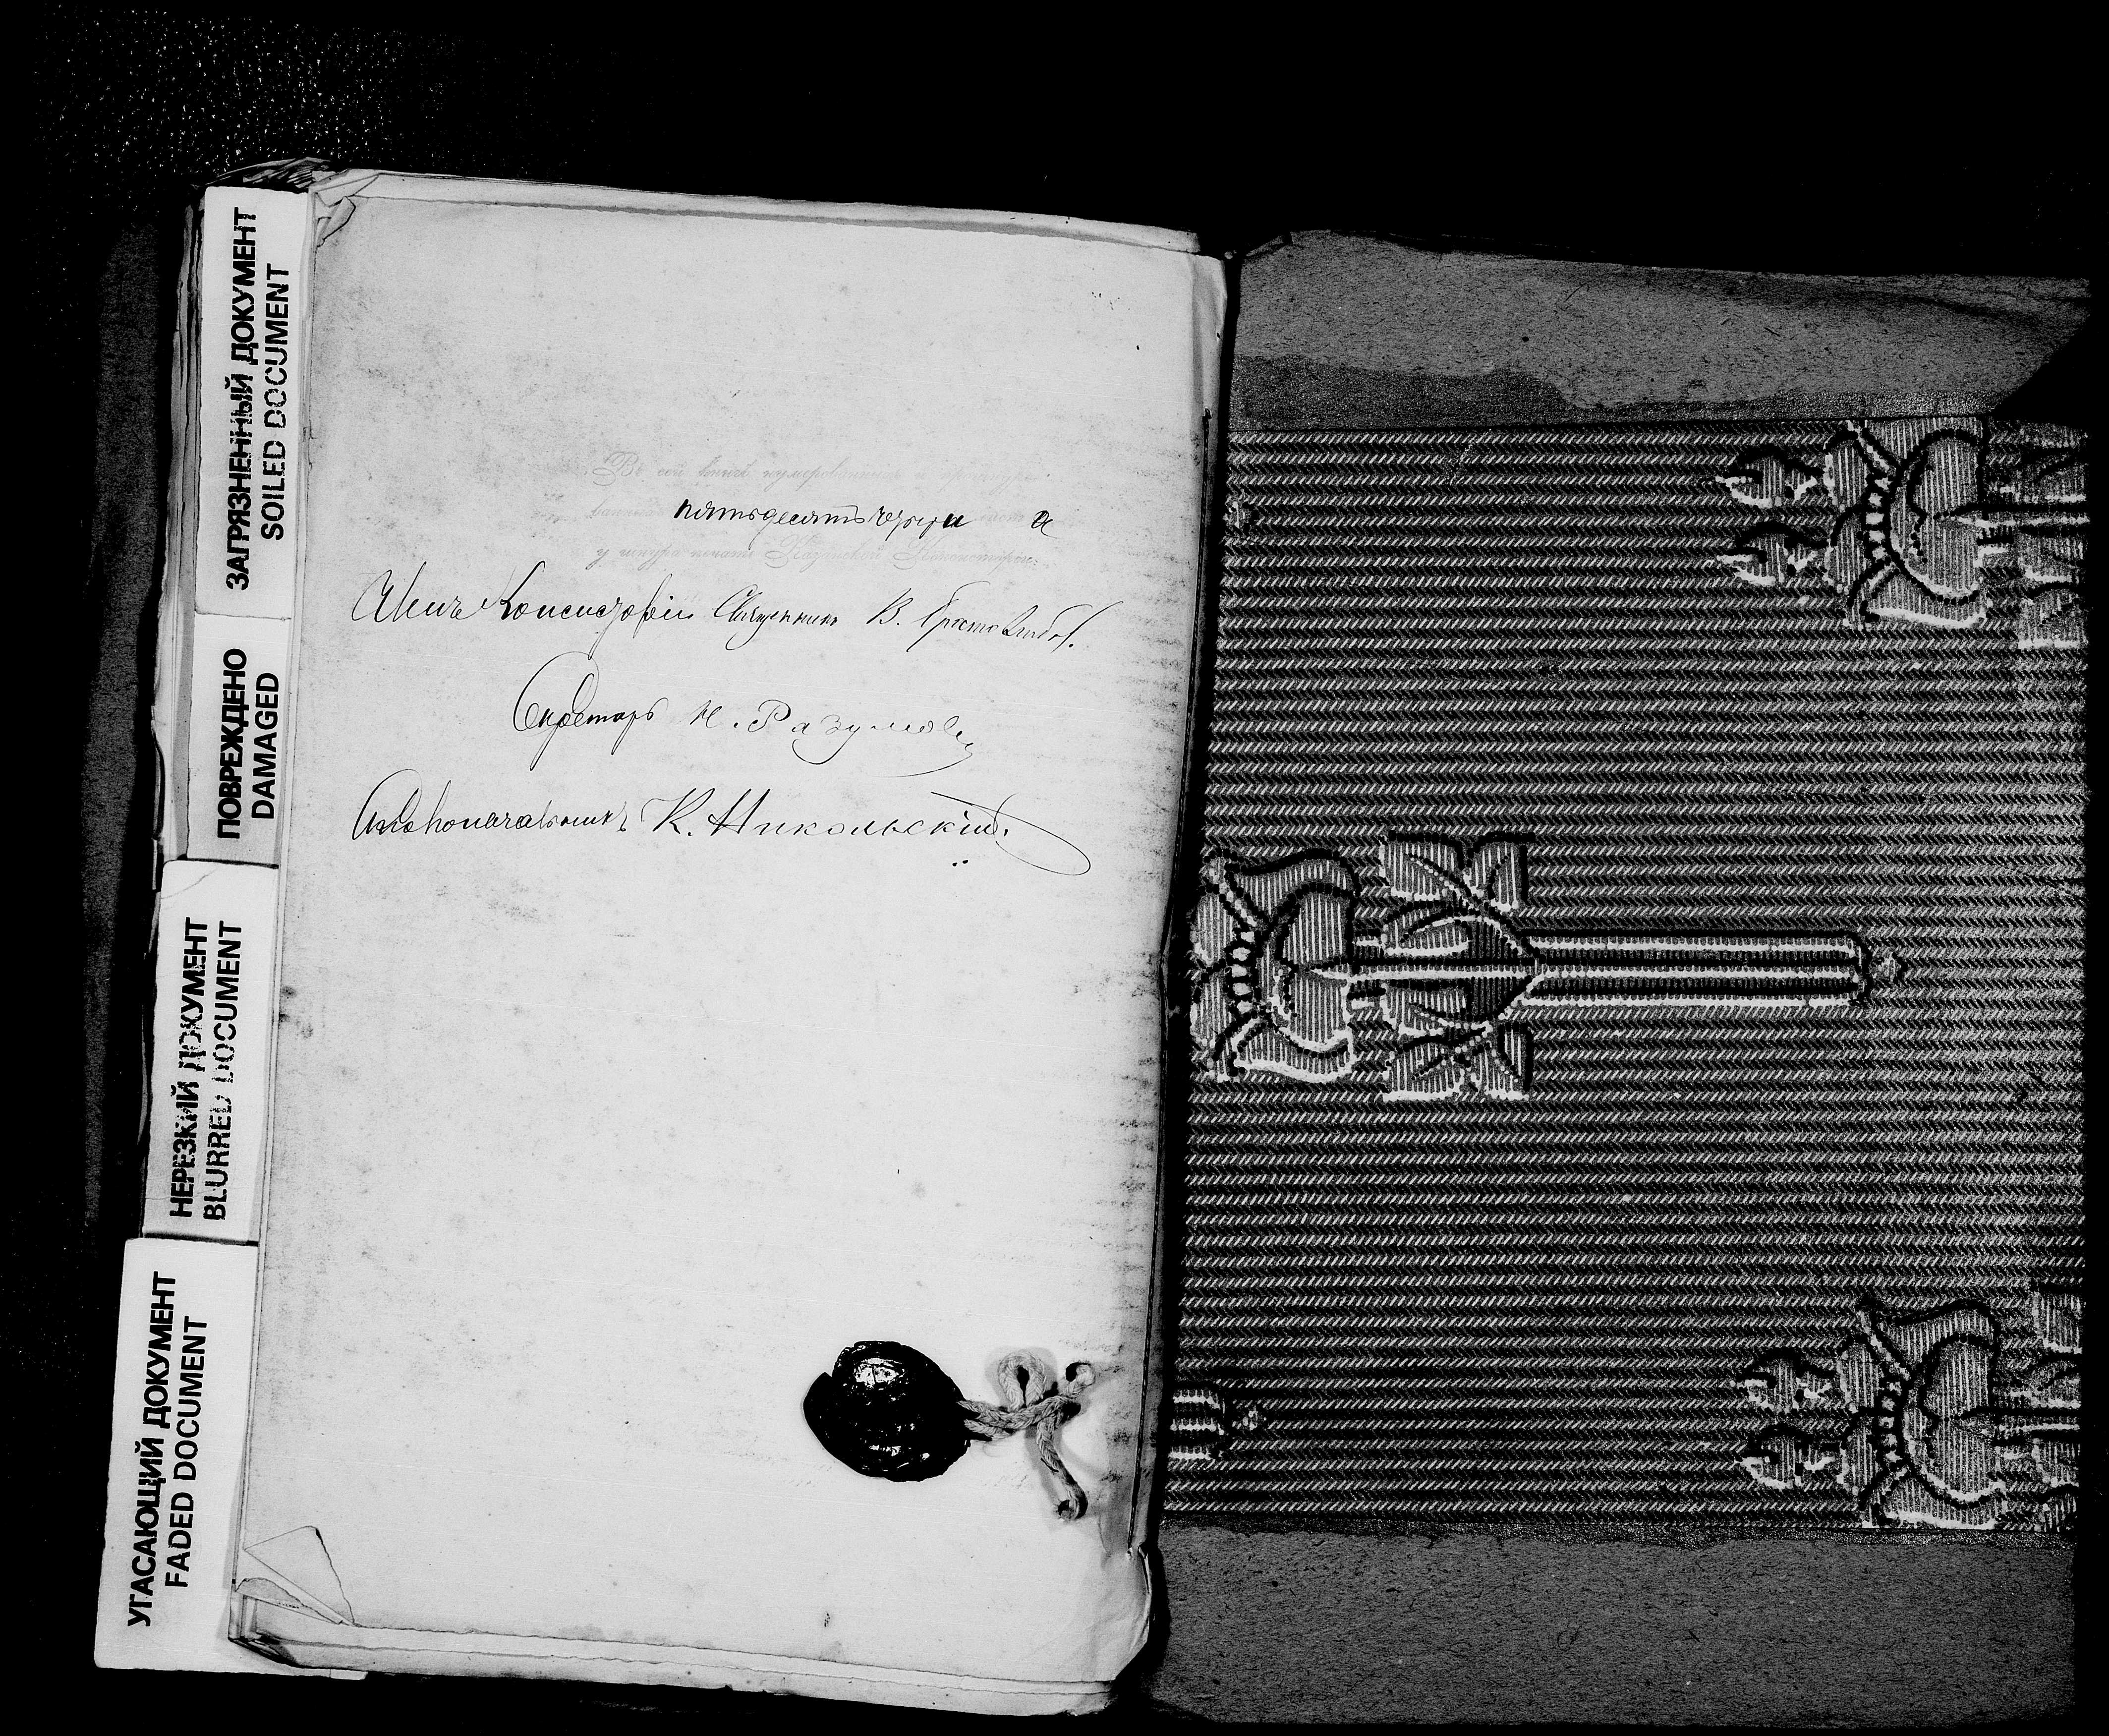 ЗАГРЯЗНЕННЫЙ ДОКУМЕНТ
SOILED DOCUMENT
ПОВРЕЖДЕНО
DAMAGED
НЕРЕЗКИЙ ДОКУМЕНТ
BLURRED DOCUMENT
УГАСАЮЩИЙ ДОКУМЕНТ
FADED DOCUMENT
Въ сей книгѣ нумерованныхъ
пятьдесятъ три а
у шнура печати Казанской Консисторіи:
Членъ Консисторіи Священникъ В.
Секретарь Н. Разумовъ
Столоначальникъ К. Никольскій.